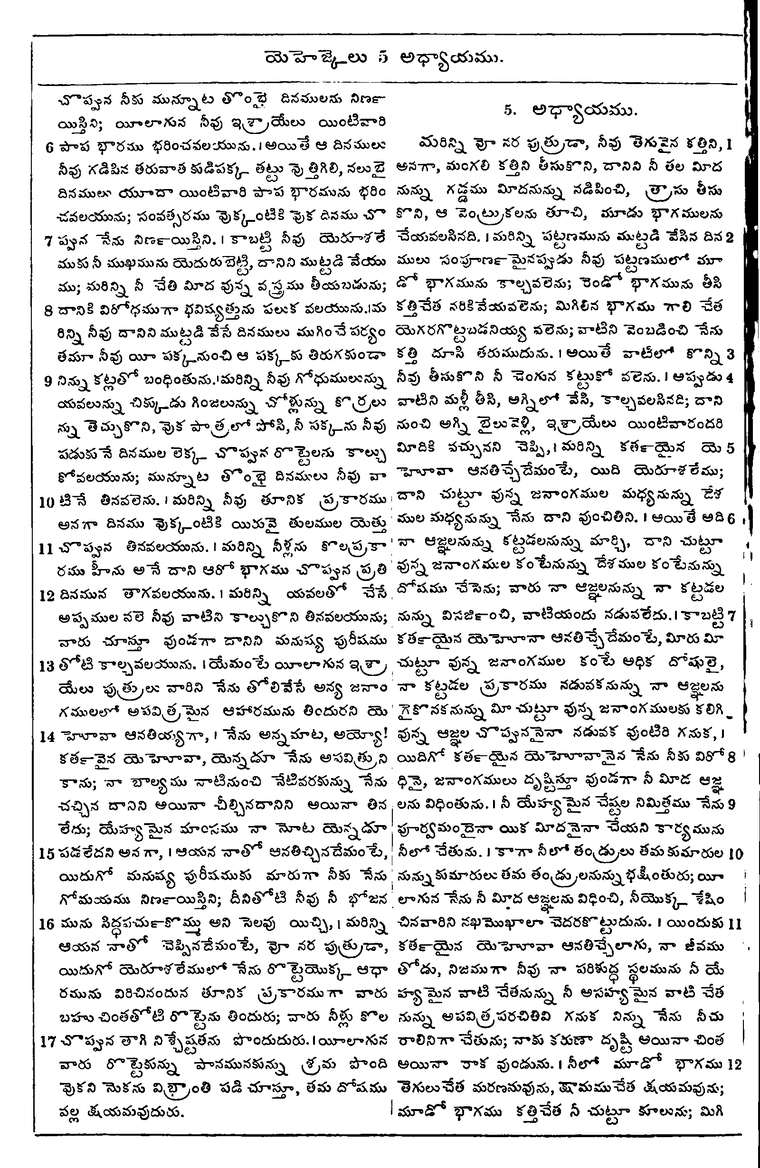 యెహెజ్కేలు 5 అధ్యాయము.
చొప్పున నీకు మున్నూట తొంభై దినములను నిర్ణ
యిస్తిని; యీలాగున నీవు ఇశ్రాయేలు యింటివారి
6 పాప భారము భరించవలయును. । అయితే ఆ దినములు
నీవు గడిపిన తరువాత కుడిపక్క తట్టు వొత్తిగిలి, నలుభై
దినములు యూదా యింటివారి పాప భారమును భరిం
చవలయును; సంవత్సరము వొక్కంటికి వొక దినము చొ
7 ప్పున నేను నిర్ణయిస్తిని. । కాబట్టి నీవు యెరూశలే
ముకు నీ ముఖమును యెదురుబెట్టి, దానిని ముట్టడి వేయు
ము; మరిన్ని నీ చేతి మీద వున్న వస్త్రము తీయబడును;
8 దానికి విరోధముగా భవిష్యత్తును పలుక వలయును. ।మ
రిన్ని నీవు దానిని ముట్టడి వేసే దినములు ముగించే పర్యం
తమూ నీవు యీ పక్కనుంచి ఆ పక్కకు తిరుగకుండా
9 నిన్ను కట్లతో బంధింతును. ।మరిన్ని నీవు గోధుములున్ను
యవలున్ను చిక్కుడు గింజలున్ను చోళ్లున్ను కొర్రలు
న్ను తెచ్చుకొని, వొక పాత్రలో పోసి, నీ పక్కను నీవు
పడుకునే దినముల లెక్క చొప్పున రొట్టెలను కాల్చు
కోవలయును; మున్నూట తొంభై దినములు నీవు వా
10 టినే తినవలెను. । మరిన్ని నీవు తూనిక ప్రకారము
అనగా దినము వొక్కంటికి యిరువై తులముల యెత్తు
11 చొప్పున తినవలయును. । మరిన్ని నీళ్లను కొలప్రకా
రము హీను అనే దాని ఆరో భాగము చొప్పున ప్రతి
12 దినమున తాగవలయును. । మరిన్ని యవలతో చేసే
అప్పముల వలె నీవు వాటిని కాల్చుకొని తినవలయును;
వారు చూస్తూ వుండగా దానిని మనుష్య పురీషము
13 తోటి కాల్చవలయును. । యేమంటే యీలాగున ఇశ్రా
యేలు పుత్రులు వారిని నేను తోలివేసే అన్య జనాం
గములలో అపవిత్రమైన ఆహారమును తిందురని యె
14 హోవా ఆనతియ్యగా, । నేను అన్నమాట, అయ్యో!
కర్తవైన యెహోవా, యెన్నడూ నేను అపవిత్రుని
కాను; నా బాల్యము నాటినుంచి నేటివరకున్ను నేను
చచ్చిన దానిని అయినా చీల్చినదానిని అయినా తిన
లేదు; యేహ్యమైన మాంసము నా నోట యెన్నడూ
15 పడలేదని అనగా, । ఆయన నాతో ఆనతిచ్చినదేమంటే,
యిదుగో మనుష్య పురీషముకు మారుగా నీకు నేను
గోమయము నిర్ణయిస్తిని; దీనితోటి నీవు నీ భోజన
16 మును సిద్ధపర్చుకొమ్ము అని సెలవు యిచ్చి, । మరిన్ని
ఆయన నాతో చెప్పినదేమంటే, వో నర పుత్రుడా,
యిదుగో యెరూశలేములో నేను రొట్టెయొక్క ఆధా
రమును విరిచినందున తూనిక ప్రకారముగా వారు
బహు చింతతోటి రొట్టెను తిందురు; వారు నీళ్లు కొల
17 చొప్పున తాగి నిశ్చేష్టతను పొందుదురు. ।యీలాగున
వారు రొట్టెకున్ను పానమునకున్ను శ్రమ పొంది
వొకని నొకను విభ్రాంతి పడి చూస్తూ, తమ దోషము
వల్ల క్షయమవుదురు.
5. అధ్యాయము.
మరిన్ని వో నర పుత్రుడా, నీవు తెగువైన కత్తిని, 1
అనగా, మంగలి కత్తిని తీసుకొని, దానిని నీ తల మీద
నున్ను గడ్డము మీదనున్ను నడిపించి, త్రాసు తీసు
కొని, ఆ వెంట్రుకలను తూచి, మూడు భాగములను
చేయవలసినది. । మరిన్ని పట్టణమును ముట్టడి వేసిన దిన 2
ములు సంపూర్ణమైనప్పుడు నీవు పట్టణములో మూ
డో భాగమును కాల్చవలెను; రెండో భాగమును తీసి
కత్తిచేత నరికివేయవలెను; మిగిలిన భాగము గాలి చేత
యెగరగొట్టబడనియ్య వలెను; వాటిని వెంబడించి నేను
కత్తి దూసి తరుముదును. । అయితే వాటిలో కొన్ని 3
నీవు తీసుకొని నీ చెంగున కట్టుకో వలెను. । అప్పుడు 4
వాటిని మళ్లీ తీసి, అగ్నిలో వేసి, కాల్చవలసినది; దాని
నుంచి అగ్ని బైలువెళ్లి, ఇశ్రాయేలు యింటివారందరి
మీదికి వచ్చునని చెప్పి, । మరిన్ని కర్తయైన యె 5
హోవా ఆనతిచ్చేదేమంటే, యిది యెరూశలేము;
దాని చుట్టూ వున్న జనాంగముల మధ్యనున్ను దేశ
ముల మధ్యనున్ను నేను దాని వుంచితిని. । అయితే అది 6
నా ఆజ్ఞలనున్ను కట్టడలనున్ను మార్చి, దాని చుట్టూ
వున్న జనాంగముల కంటేనున్ను దేశముల కంటేనున్ను
దోషము చేసెను; వారు నా ఆజ్ఞలనున్ను నా కట్టడల
నున్ను విసర్జించి, వాటియందు నడువలేదు. । కాబట్టి 7
కర్తయైన యెహోవా ఆనతిచ్చేదేమంటే, మీరు మీ
చుట్టూ వున్న జనాంగముల కంటే అధిక దోషులై,
నా కట్టడల ప్రకారము నడువకనున్ను నా ఆజ్ఞలను
గైకొనకనున్ను మీ చుట్టూ వున్న జనాంగములకు కలిగి
వున్న ఆజ్ఞల చొప్పుననైనా నడువక వుంటిరి గనుక, ।
యిదిగో కర్తయైన యెహోవానైన నేను నీకు విరో 8
ధినై, జనాంగములు దృష్టిస్తూ వుండగా నీ మీద ఆజ్ఞ
లను విధింతును. । నీ యేహ్యమైన చేష్టల నిమిత్తము నేను 9
పూర్వమందైనా యిక మీదనైనా చేయని కార్యమును
నీలో చేతును. । కాగా నీలో తండ్రులు తమకుమారుల 10
నున్ను కుమారులు తమ తండ్రులనున్ను భక్షింతురు; యీ
లాగున నేను నీ మీద ఆజ్ఞలను విధించి, నీయొక్క శేషిం
చినవారిని నఖముఖాలా చెదరకొట్టుదును. । యిందుకు 11
కర్తయైన యెహోవా ఆనతిచ్చేలాగు, నా జీవము
తోడు, నిజముగా నీవు నా పరిశుద్ధ స్థలమును నీ యే
హ్యమైన వాటి చేతనున్ను నీ అసహ్యమైన వాటి చేత
నున్ను అపవిత్రపరచితివి గనుక నిన్ను నేను నీచు
రాలినిగా చేతును; నాకు కరుణా దృష్టి అయినా చింత
అయినా రాక వుండును. । నీలో మూడో భాగము 12
తెగులుచేత మరణమవును, క్షామముచేత క్షయమవును;
మూడో భాగము కత్తిచేత నీ చుట్టూ కూలును; మిగి